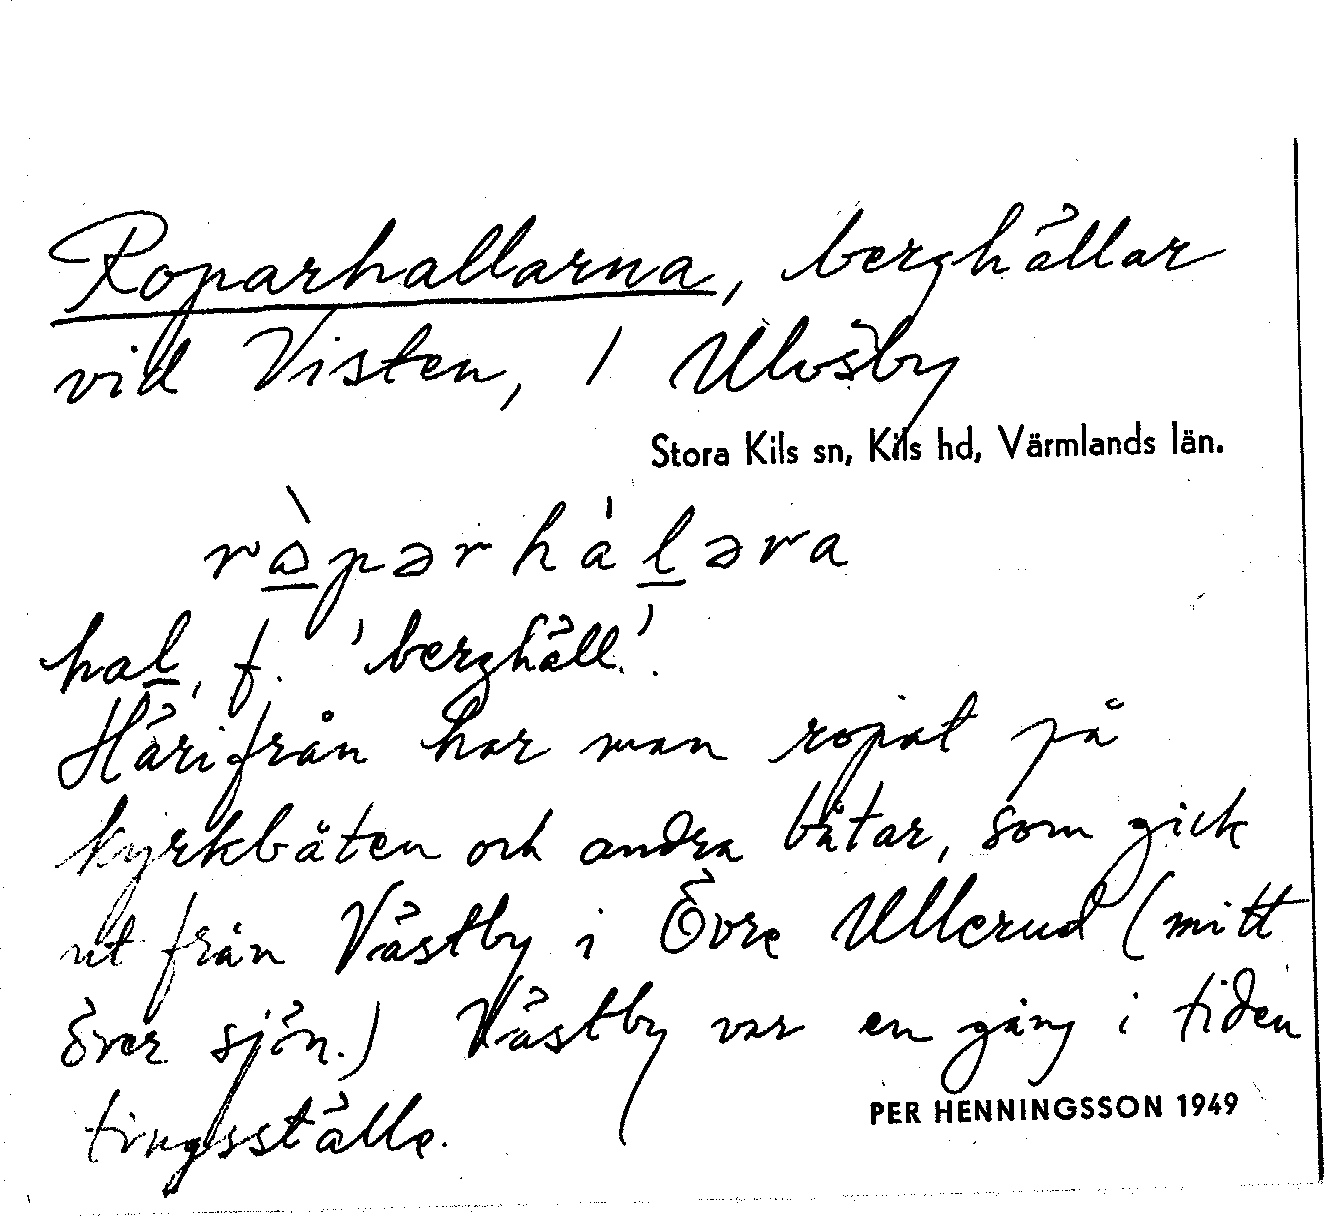 Roparhallarna, berghällar
vid Visten, / Ulvsby
Stora Kils sn, Kils hd, Värmlands län.
rò̱pərhá̱ḻəra
haḻ, f. 'berghäll'.
Härifrån har man ropat på
kyrkbåten och andra båtar, som gick
ut från Västby i Övre Ullerud (mitt
över sjön.) Västby var en gång i tiden
tingsställe.
PER HENNINGSSON 1949